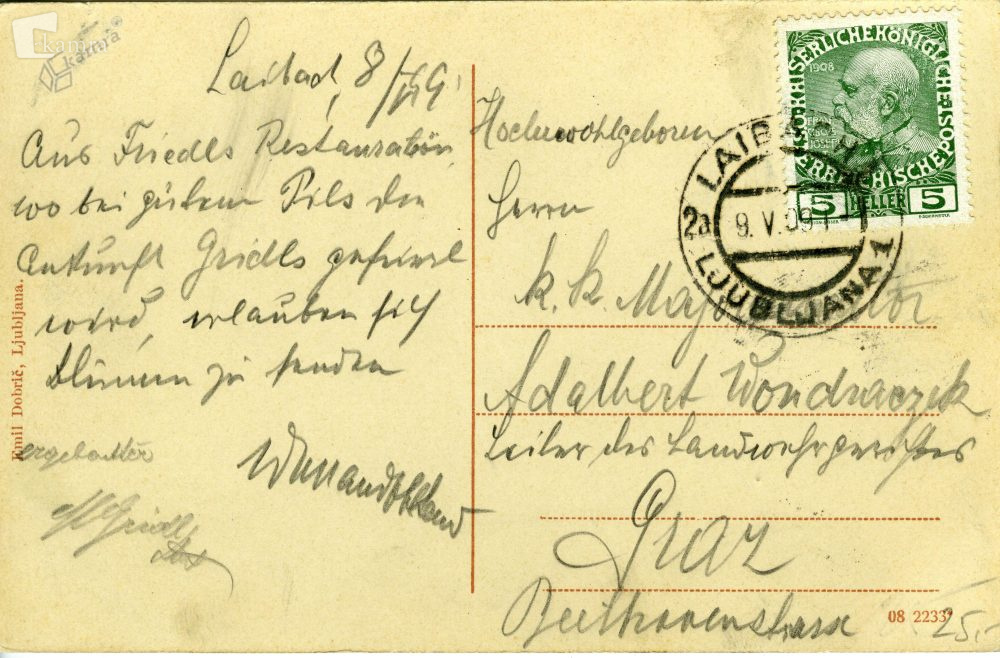 Laibach, 8/V 09.
Aus Friedls Restauration,
wo bei gutem Pils die
Ankunft Gridls gefeiert
wird, erlauben sich
Blumen zu senden
ergebenster
Gridl
Hochwohlgeboren
Herrn
k. k. Major Auditor
Adalbert Wondraczek
Leiter des Landwehrgerichtes
Graz
Beethovenstrasse
KAISERLICHE KÖNIGLICHE
ÖSTERREICHISCHE POST
1908
5 HELLER 5
LAIBACH 1
2a 9. V. 09
LJUBLJANA 1
Emil Dobrič, Ljubljana.
08 2233
25,-
kamra
kamra